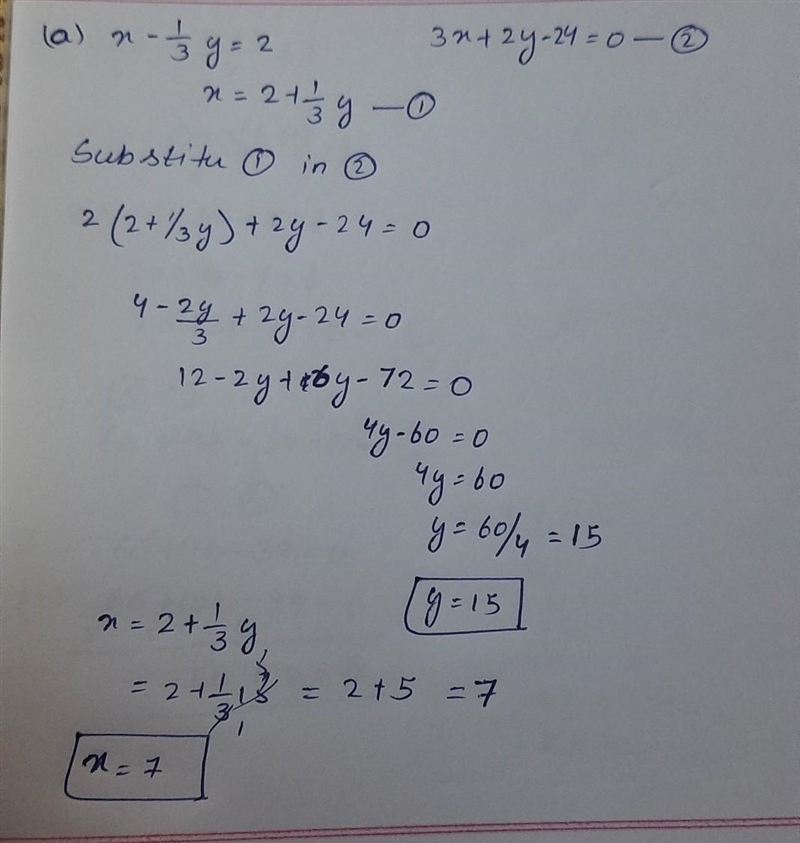 (a) x - 1/3 y = 2    3x + 2y - 24 = 0 — ②
x = 2 + 1/3 y — ①
Substitu ① in ②
2 (2 + 1/3 y) + 2y - 24 = 0
4 - 2y/3 + 2y - 24 = 0
12 - 2y + 6y - 72 = 0
4y - 60 = 0
4y = 60
y = 60/4 = 15
y = 15
x = 2 + 1/3 y
= 2 + 1/3 15 5 1 = 2 + 5 = 7
x = 7